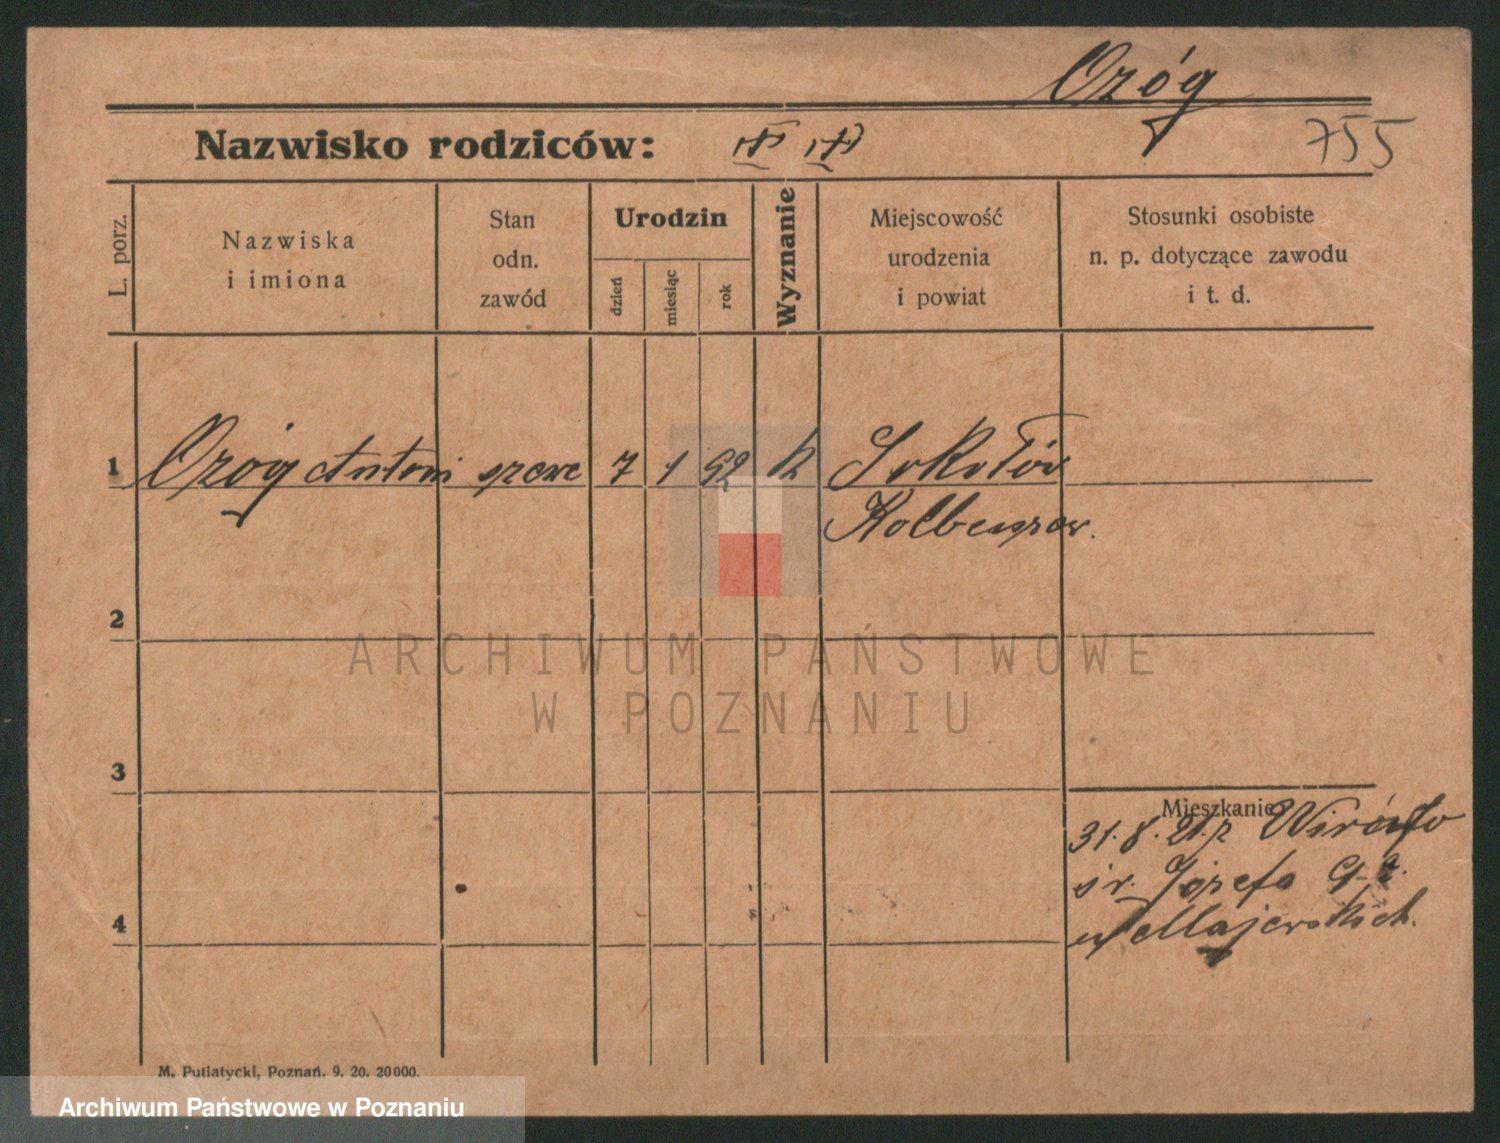 Ożóg
Nazwisko rodziców:
755
L. porz.
Nazwiska
i imiona
Stan
odn.
zawód
Urodzin
dzień
miesiąc
rok
Wyznanie
Miejscowość
urodzenia
i powiat
Stosunki osobiste
n. p. dotyczące zawodu
i t. d.
1 Ożóg Antoni szewc 7 1 92 k Sokołów
Kolbuszow.
2
ARCHIWUM PAŃSTWOWE
W POZNANIU
3
Mieszkanie
31.8.21. z
św. Józefa
u Majewskich.
4
M. Putiatycki, Poznań. 9. 20. 20000.
Archiwum Państwowe w Poznaniu